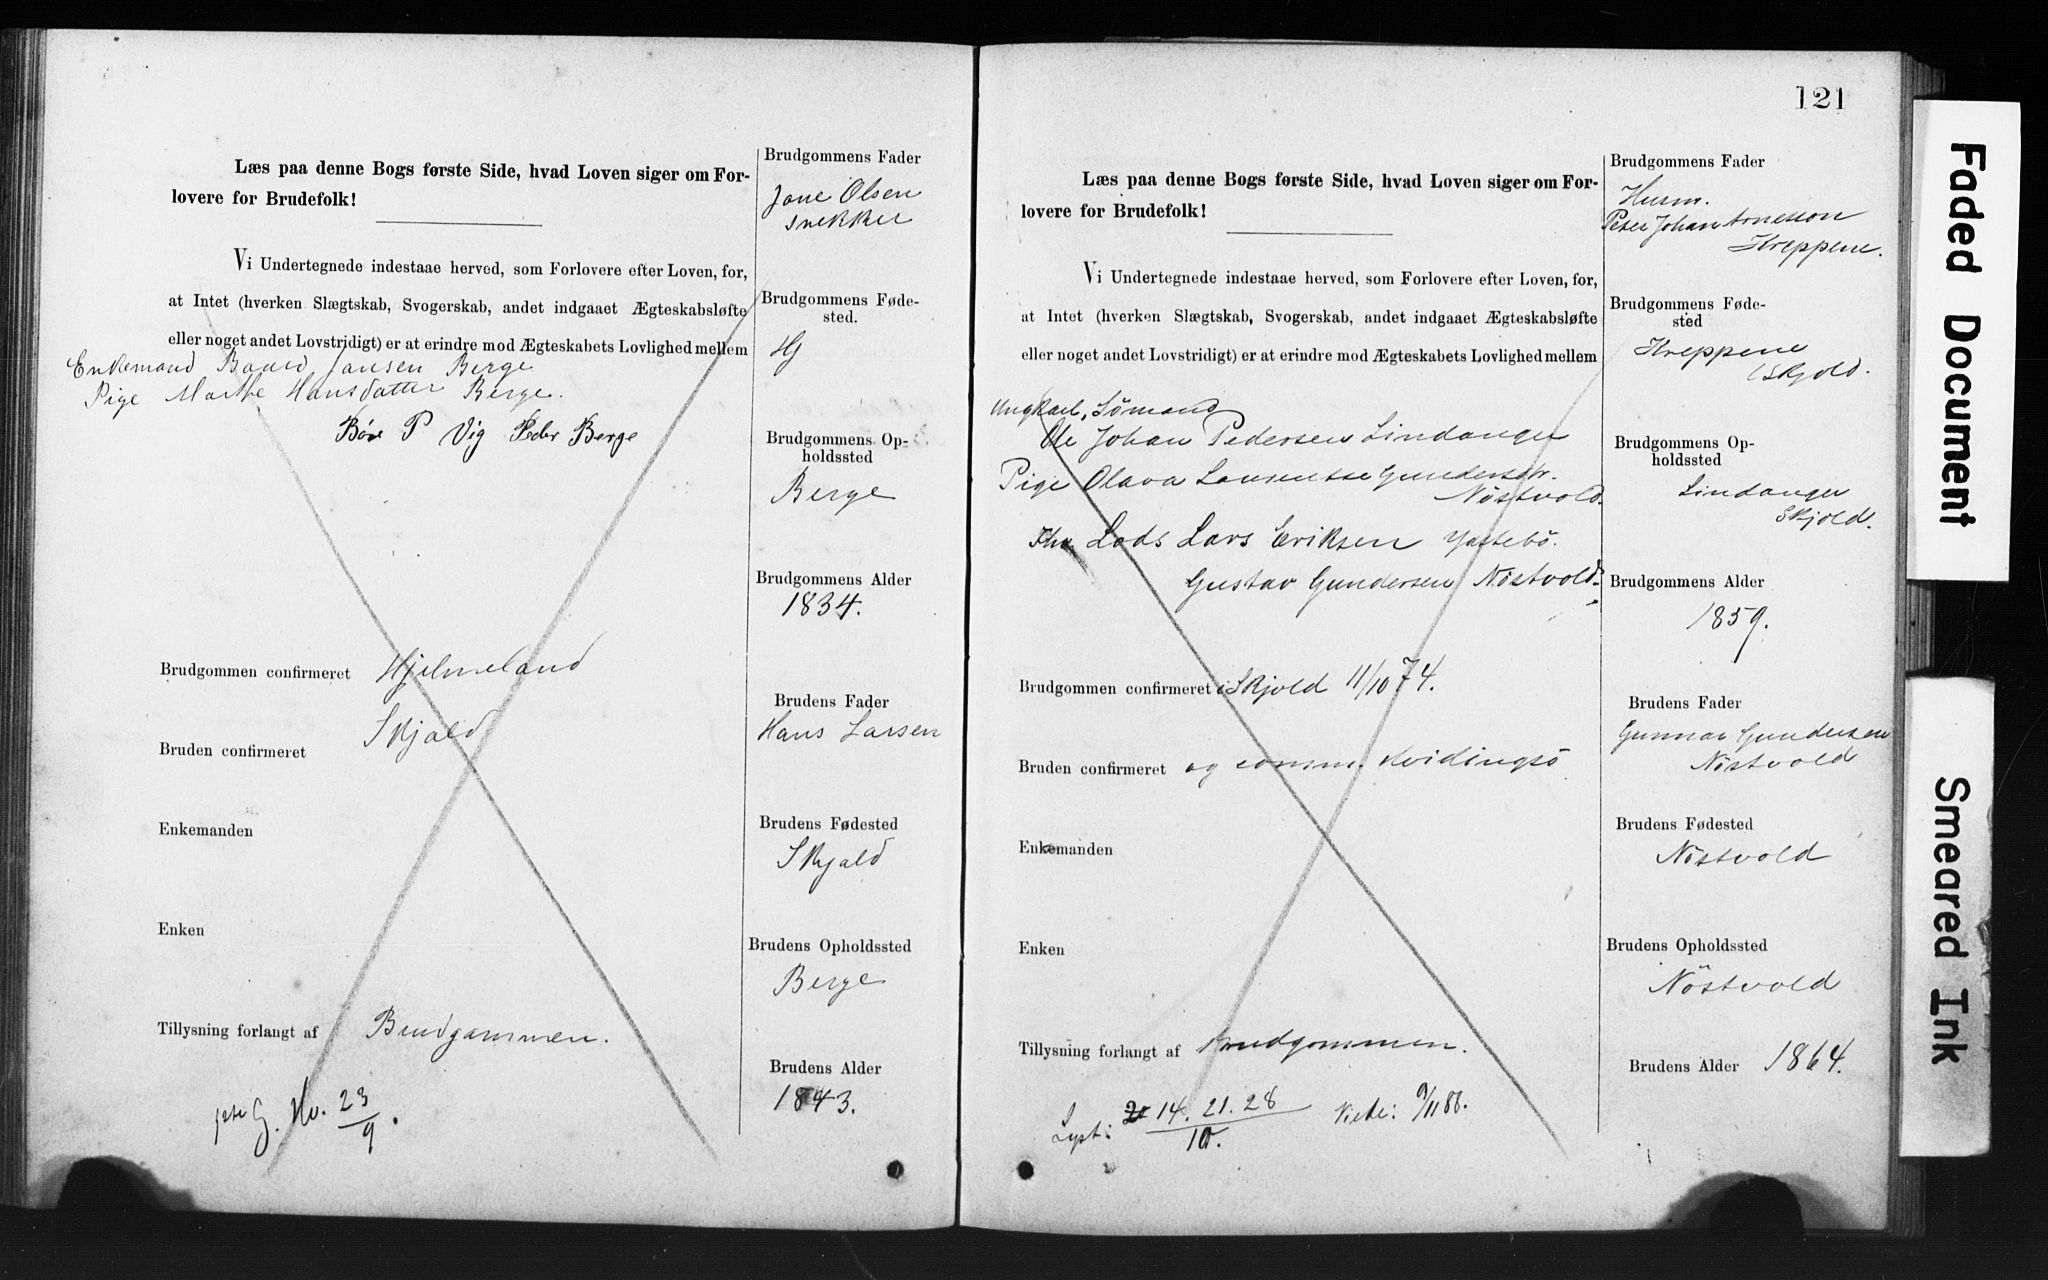 Læs paa denne Bogs første Side, hvad Loven siger om For-
lovere for Brudefolk!
Vi Undertegnede indestaae herved, som Forlovere efter Loven, for,
at Intet (hverken Slægtskab, Svogerskab, andet indgaaet Ægteskabsløfte
eller noget andet Lovstridigt) er at erindre mod Ægteskabets Lovlighed mellem
Enkemand Baard Jansen Berge
Pige Marthe Hansdatter Berge.
Bår P Vig Peder Berge
Brudgommen confirmeret Hjelmeland
Bruden confirmeret Skjold
Enkemanden
Enken
Tillysning forlangt af Brudgommen.
1ste G. Hv. 23/9.
Brudgommens Fader
Jone Olsen
snekker
Brudgommens Føde-
sted.
Hj
Brudgommens Op-
holdssted
Berge
Brudgommens Alder
1834.
Brudens Fader
Hans Larsen
Brudens Fødested
Skjold
Brudens Opholdssted
Berge
Brudens Alder
1843.
121
Læs paa denne Bogs første Side, hvad Loven siger om For-
lovere for Brudefolk!
Vi Undertegnede indestaae herved, som Forlovere efter Loven, for,
at Intet (hverken Slægtskab, Svogerskab, andet indgaaet Ægteskabsløfte
eller noget andet Lovstridigt) er at erindre mod Ægteskabets Lovlighed mellem
Ungkarl, Sömand
Ole Johan Pedersen Lindanger
Pige Olava Laurentse Gundersdtr.
Nöstvold.
Lods Lars Eriksen
Gustav Gundersen Nöstvold.
Brudgommen confirmeret i Skjold 11/10 74.
Bruden confirmeret og comm. Hvidingsö
Enkemanden
Enken
Tillysning forlangt af Brudgommen.
Lyst: 14. 21. 28/10. Viede: 9/11 86.
Brudgommens Fader
Husm.
Peder Johan Arnesson
Kreppene.
Brudgommens Føde-
sted
Kreppene
i Skjold.
Brudgommens Op-
holdssted
Lindanger
Skjold.
Brudgommens Alder
1859.
Brudens Fader
Gunnar Gundersen
Nöstvold
Brudens Fødested
Nöstvold
Brudens Opholdssted
Nöstvold
Brudens Alder 1864.
Faded Document
Smeared Ink